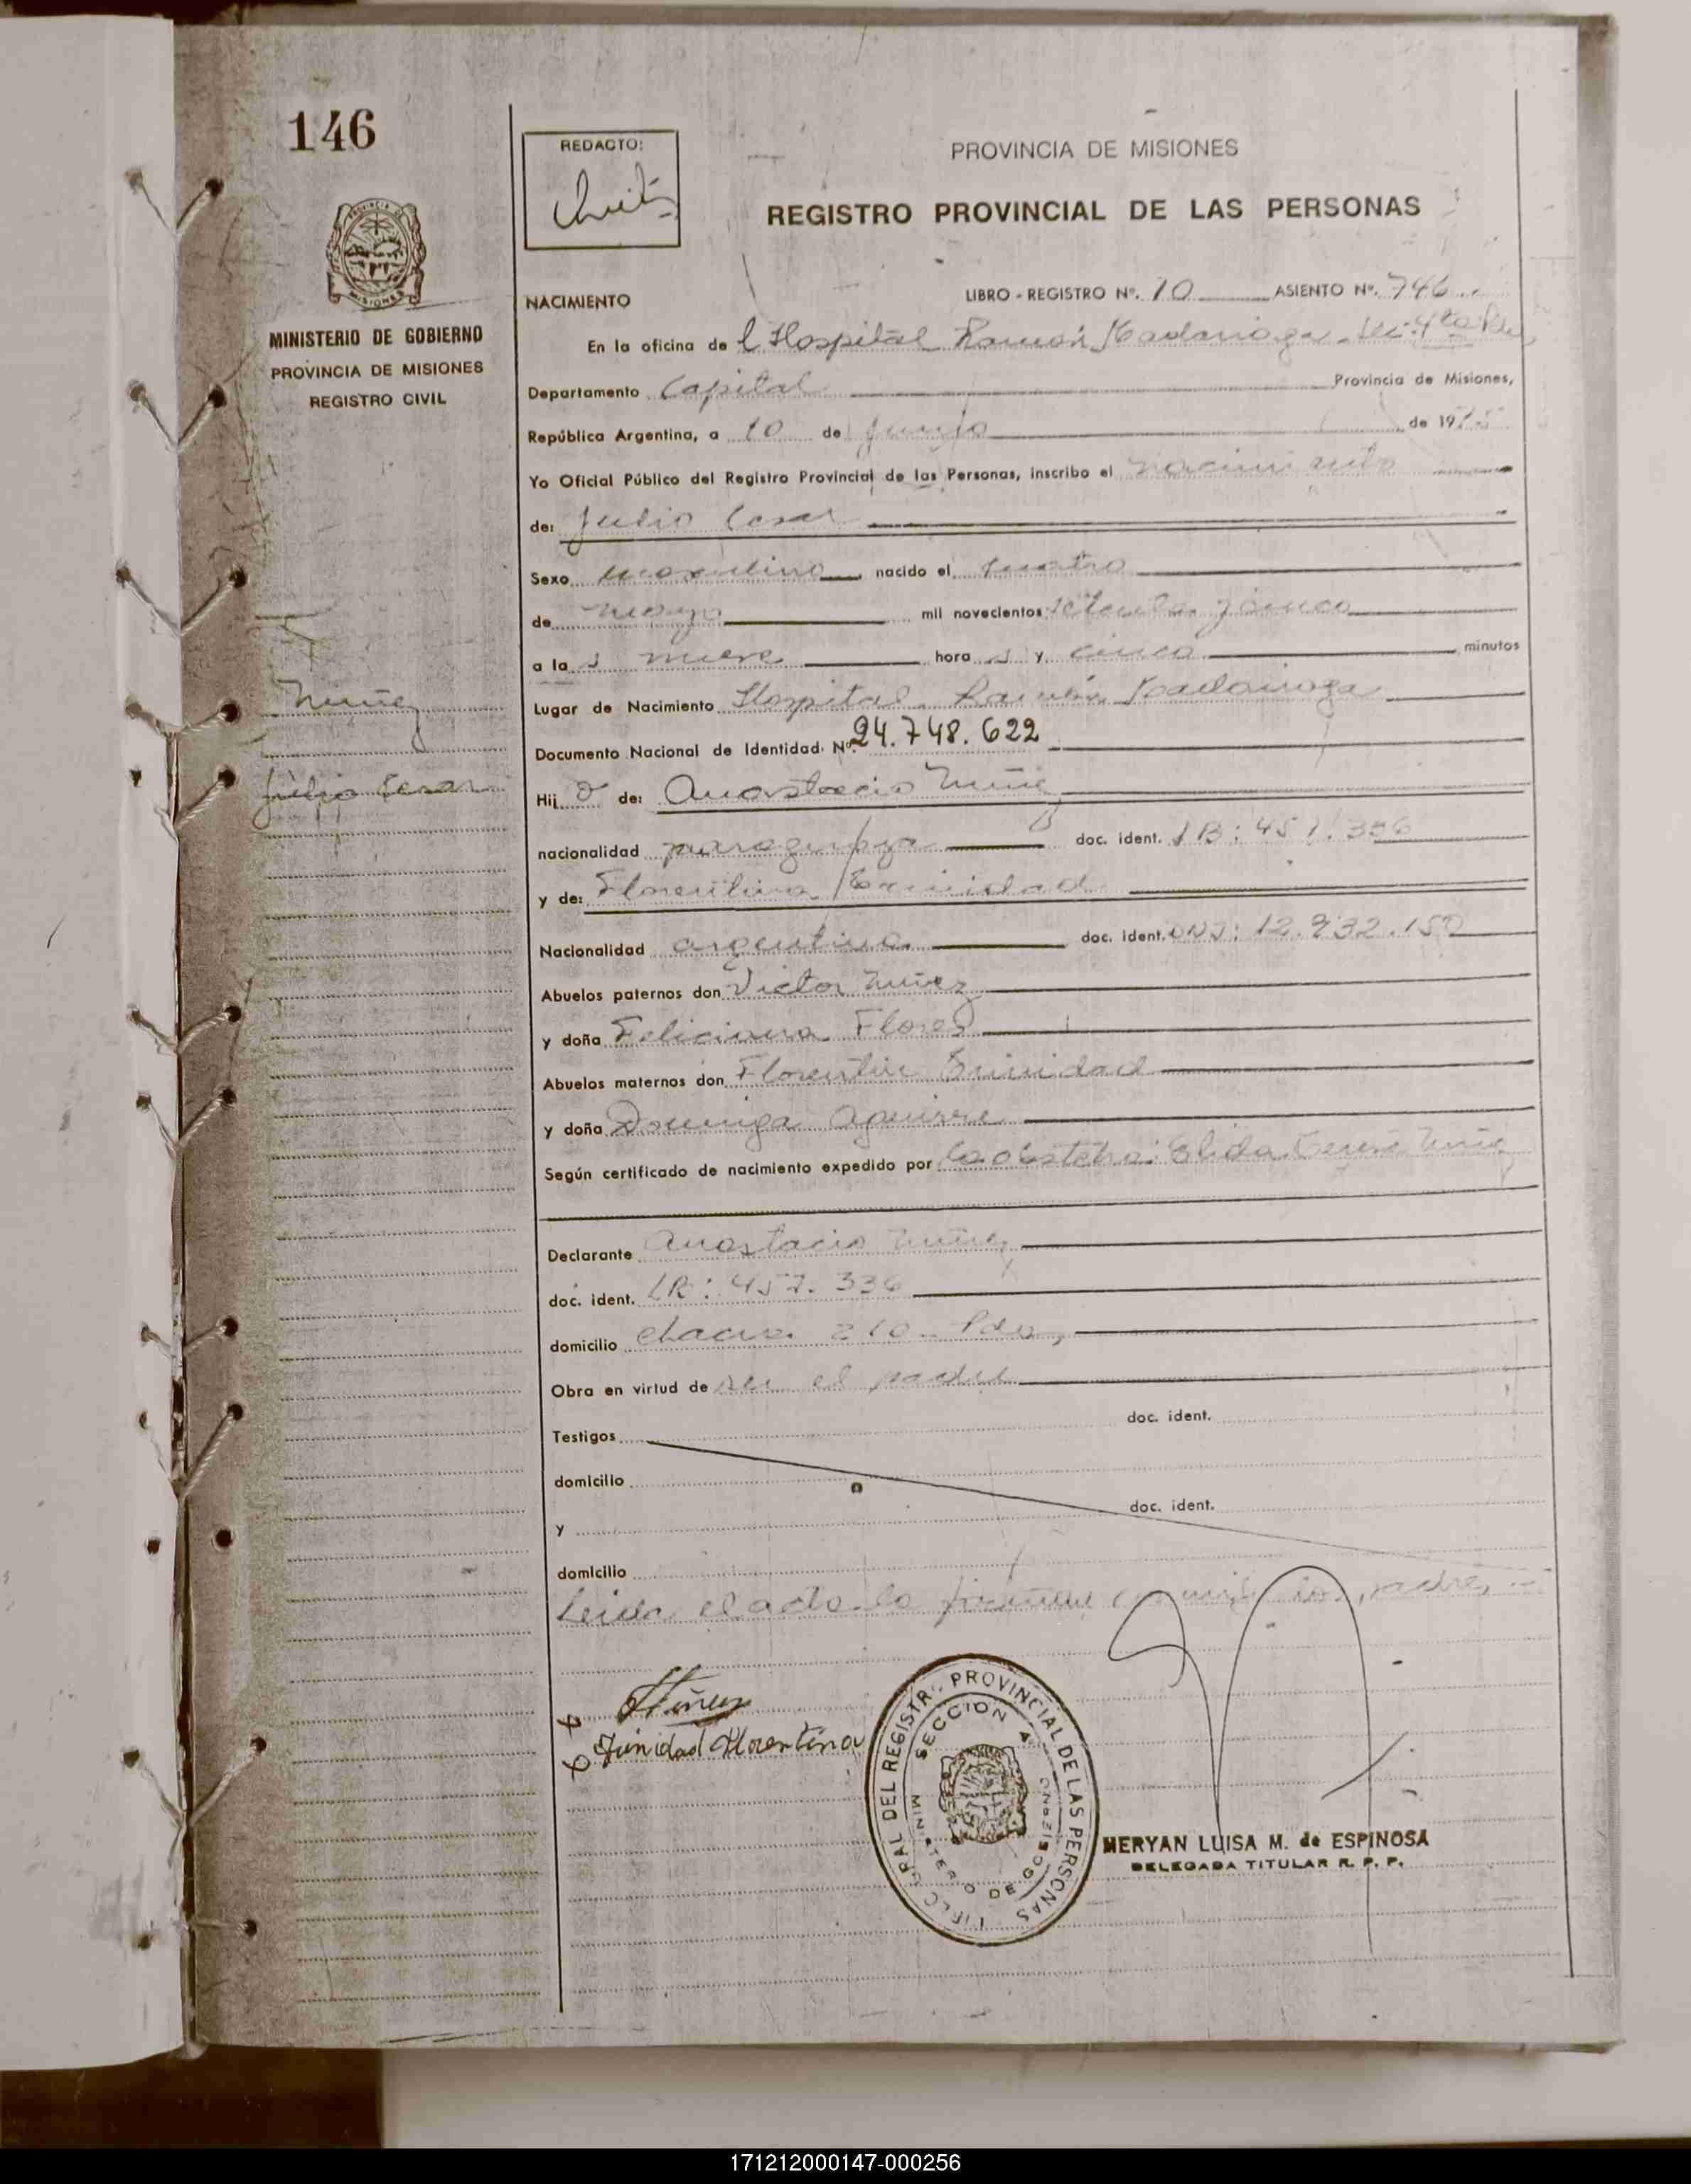 146
REDACTO:
PROVINCIA DE MISIONES
REGISTRO PROVINCIAL DE LAS PERSONAS
PROVINCIA DE
MISIONES
MINISTERIO DE GOBIERNO
PROVINCIA DE MISIONES
REGISTRO CIVIL
NACIMIENTO
LIBRO - REGISTRO Nº. 10 ASIENTO Nº. 746
En la oficina de l Hospital Ramón Madariaga - Sec. 4ta
Departamento Capital Provincia de Misiones,
República Argentina, a 10 de junio de 1975
Yo Oficial Público del Registro Provincial de las Personas, inscribo el nacimiento
de: Julio Cesar
Sexo masculino nacido el cuatro
de mayo mil novecientos setenta y cinco
a la s nueve hora s y cinco minutos
Núñez
Julio Cesar
Lugar de Nacimiento Hospital Ramón Madariaga
Documento Nacional de Identidad. Nº 24.748.622
Hij o de: Anastacio Núñez
nacionalidad paraguaya doc. ident.
y de: Florentina Trinidad
Nacionalidad argentina doc. ident. DNI: 12.932.150
Abuelos paternos don Victor Núñez
y doña Feliciana Flores
Abuelos maternos don Florentin Trinidad
y doña Dominga Aguirre
Según certificado de nacimiento expedido por la obstetra: Elida Núñez
Declarante Anastacio Núñez
doc. ident. 457.336
domicilio chacra 210 - Pdas,
Obra en virtud de ser el padre
doc. ident.
Testigos
domicilio
doc. ident.
y
domicilio
Leida el acta la firman conmigo los padres
x Núñez
x Trinidad Florentina
GRAL DEL REGISTRO PROVINCIAL DE LAS PERSONAS
SECCION 4
MINISTERIO DE GOBIERNO
MERYAN LUISA M. de ESPINOSA
DELEGADA TITULAR R. P. P.
171212000147-000256